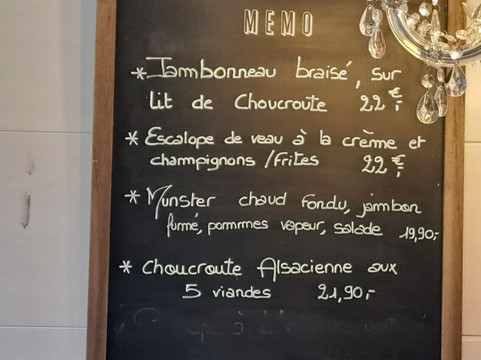 MEMO
* Jambonneau braisé, sur
lit de Choucroute 22€,-
* Escalope de veau à la crème et
champignons / Frites 22€,-
* Munster chaud fondu, jambon
fumé, pommmes vapeur, salade 19,90,-
* Choucroute Alsacienne aux
5 viandes 21,90,-